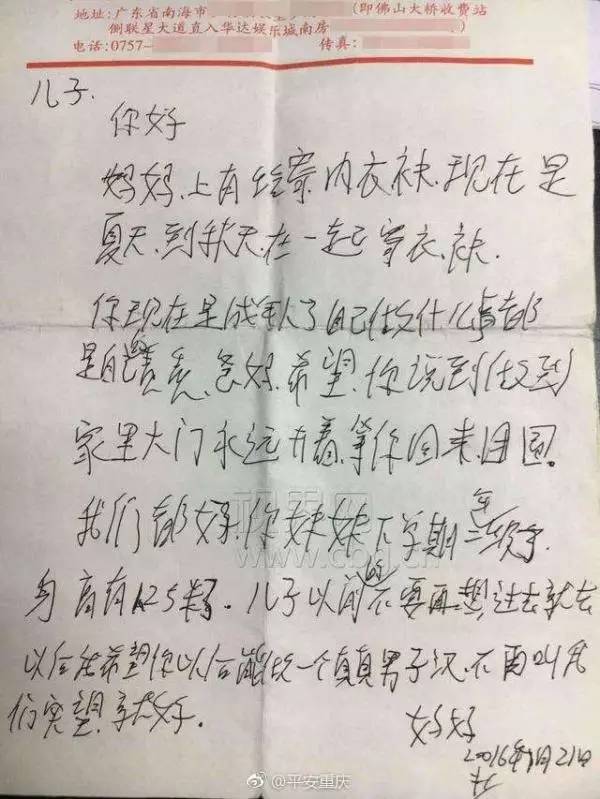 地址:广东省南海市 (即佛山大桥收费站
侧联星大道直入华达娱乐城南房 )
电话:0757- 传真:
儿子.
你好
妈妈.上有给寄内衣袜.现在是
夏天.到秋天.在一起寄衣.袜.
你现在是成年人了自己做什么事都
是自己负责.爸妈.希望.你说到做到
家里大门永远开着.等你回来团圆。
我们都好.你妹妹下学期二年级.
身高有125.儿子以前的不要再想过去就去
以后我希望你以后能做一个真真男子汉.不要叫我
们失望.就好.
妈妈
2016年 月21日
视界网
www.cbg.cn
@平安重庆